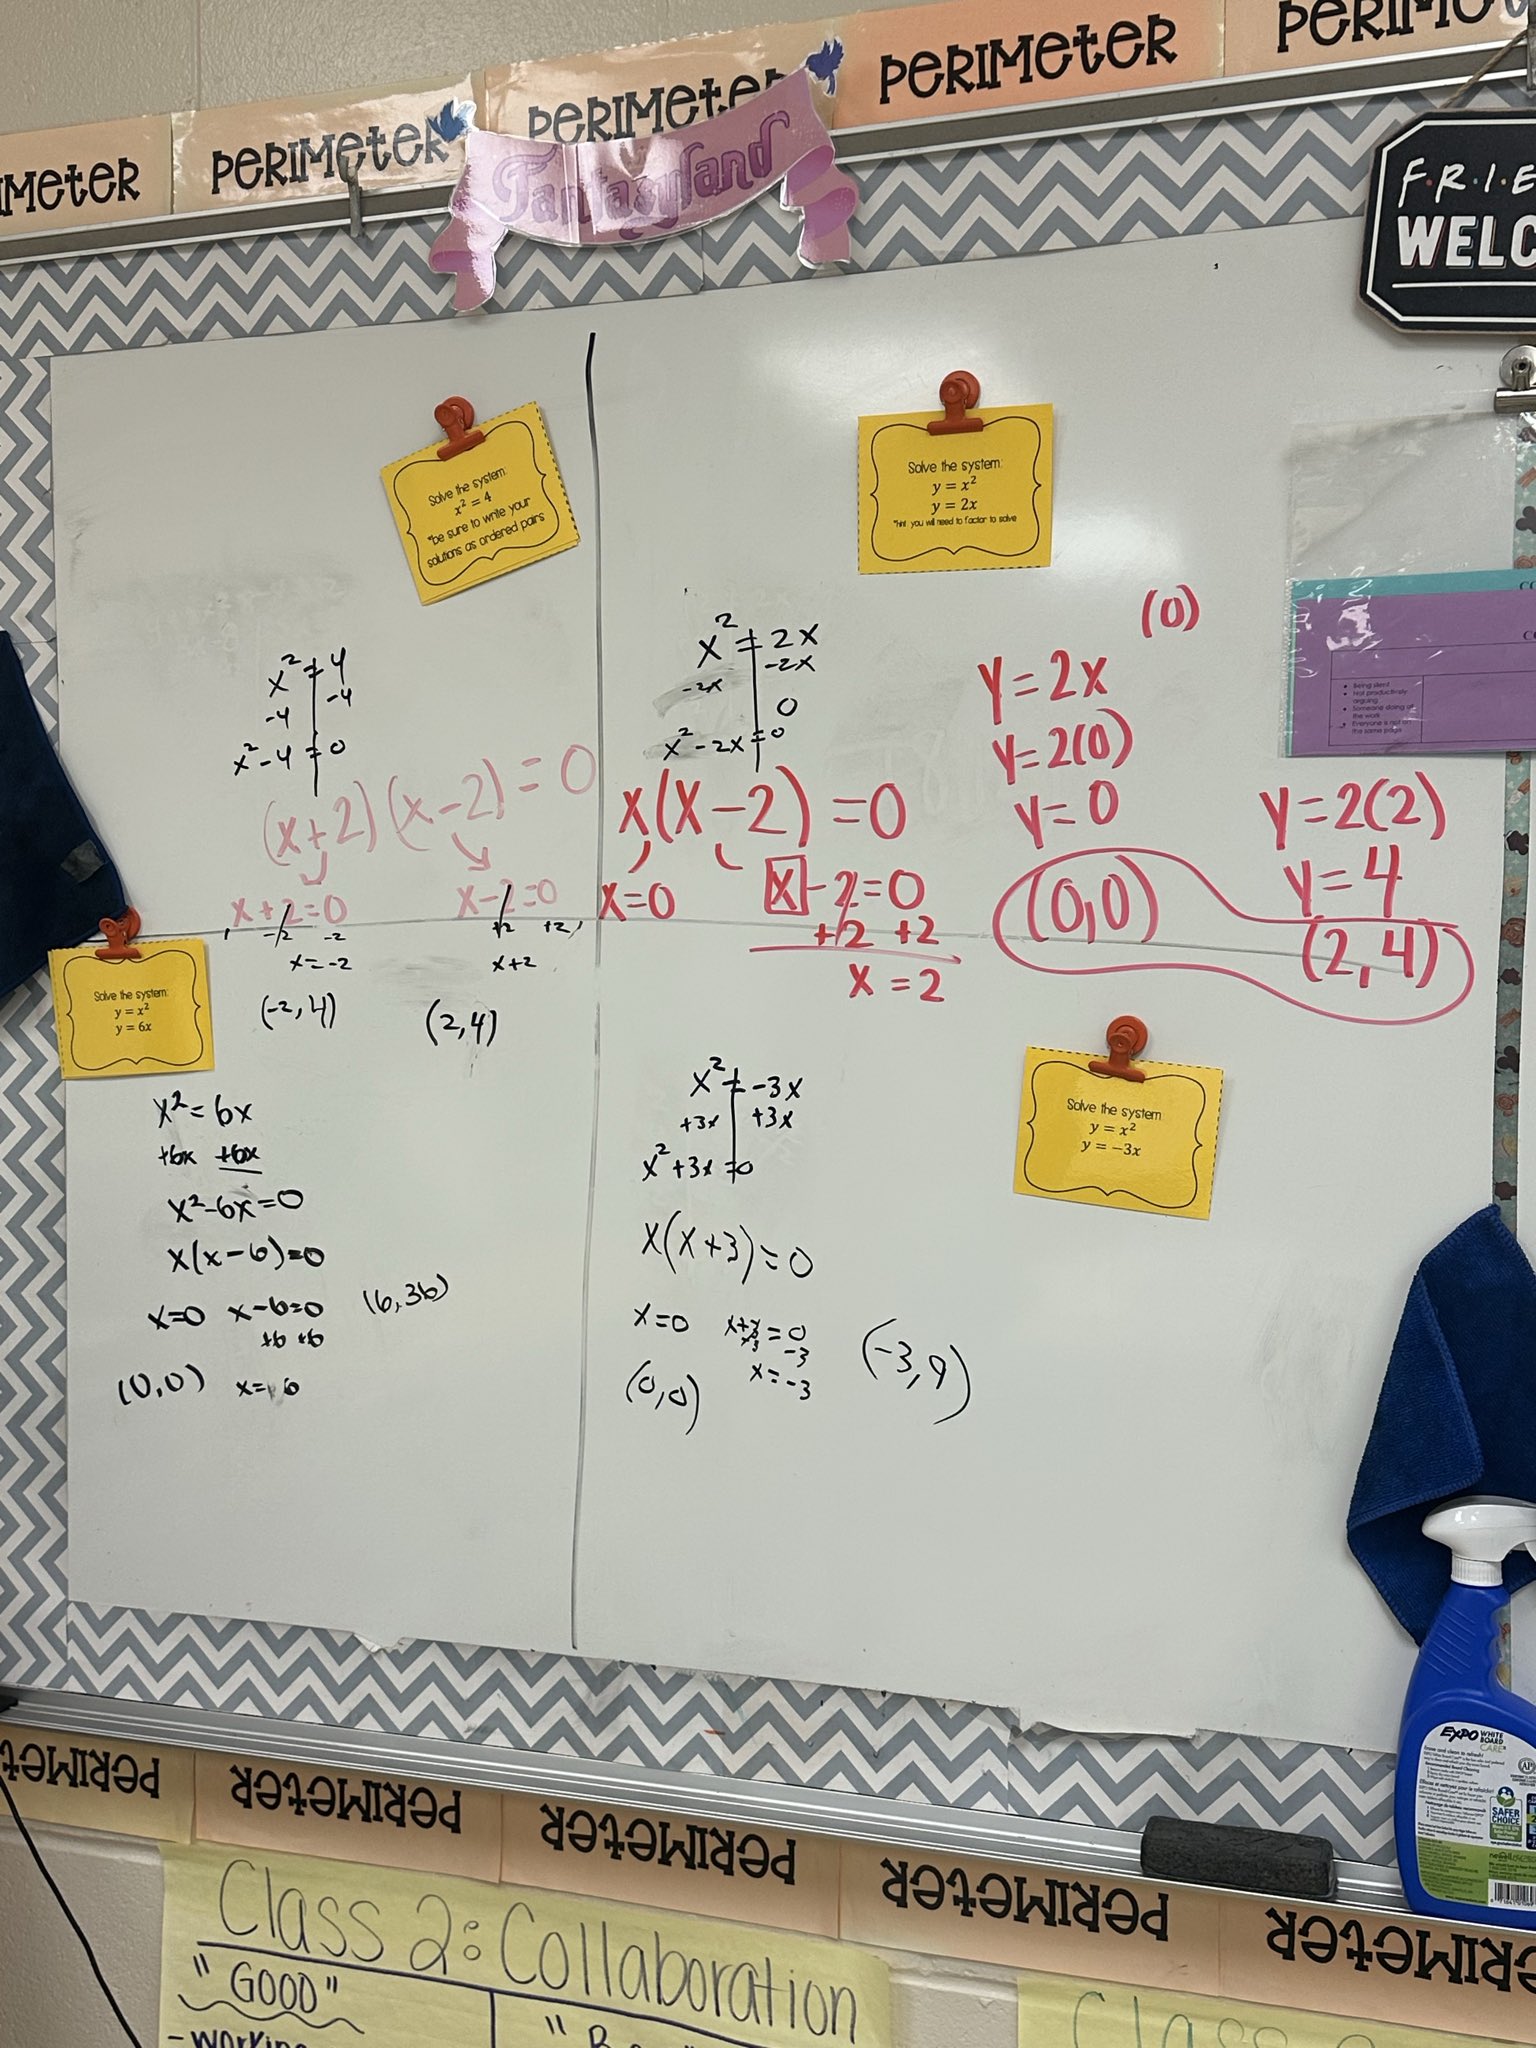 PERIMETER
PERIMETER
PERIMETER
Fantasyland
F·R·I·E
WELC
Solve the system:
x² = 4
*be sure to write your
solutions as ordered pairs
x² = 4
-4 -4
x² - 4 = 0
(x+2)(x-2) = 0
x+2=0 x-2=0
-2 -2 +2 +2
x=-2 x+2
(-2,4) (2,4)
Solve the system:
y = x²
y = 2x
*hint you will need to factor to solve
x² = 2x
-2x -2x
0
x² - 2x = 0
x(x-2) = 0
x=0 x-2=0
+2 +2
x = 2
(0)
y=2x
y=2(0)
y=0
(0,0)
y=2(2)
y=4
(2,4)
Being silent
Not productively
arguing
Someone doing all
the work
Everyone is not on
the same page
Solve the system:
y = x²
y = 6x
x² = 6x
+6x +6x
x²-6x=0
x(x-6)=0
x=0 x-6=0 (6,36)
+6 +6
(0,0) x= 6
x² = -3x
+3x +3x
x²+3x=0
x(x+3)=0
x=0 x+3=0
-3 -3
x=-3
(0,0) (-3,9)
Solve the system
y = x²
y = -3x
EXPO WHITE
BOARD
CARE
SAFER
CHOICE
PERIMETER
PERIMETER
PERIMETER
Class 2: Collaboration
"GOOD"
-working